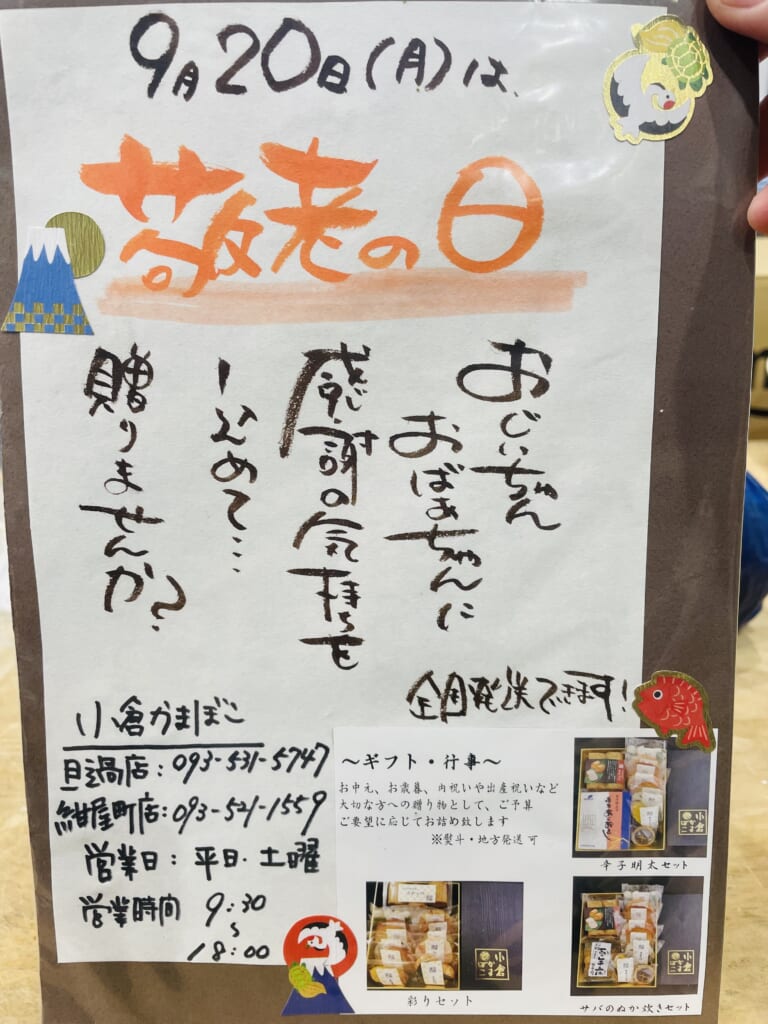 9月20日(月)は、
敬老の日
おじいちゃん
おばあちゃんに
感謝の気持ちを
込めて…
贈りませんか?
全国発送できます!
小倉かまぼこ
旦過店:093-531-5747
紺屋町店:093-521-1559
営業日:平日・土曜
営業時間 9:30
~
18:00
~ギフト・行事~
お中元、お歳暮、内祝いや出産祝いなど
大切な方への贈り物として、ご予算
ご要望に応じてお詰め致します
※熨斗・地方発送 可
小倉かまぼこ
辛子明太セット
小倉かまぼこ
彩りセット
小倉かまぼこ
サバのぬか炊きセット